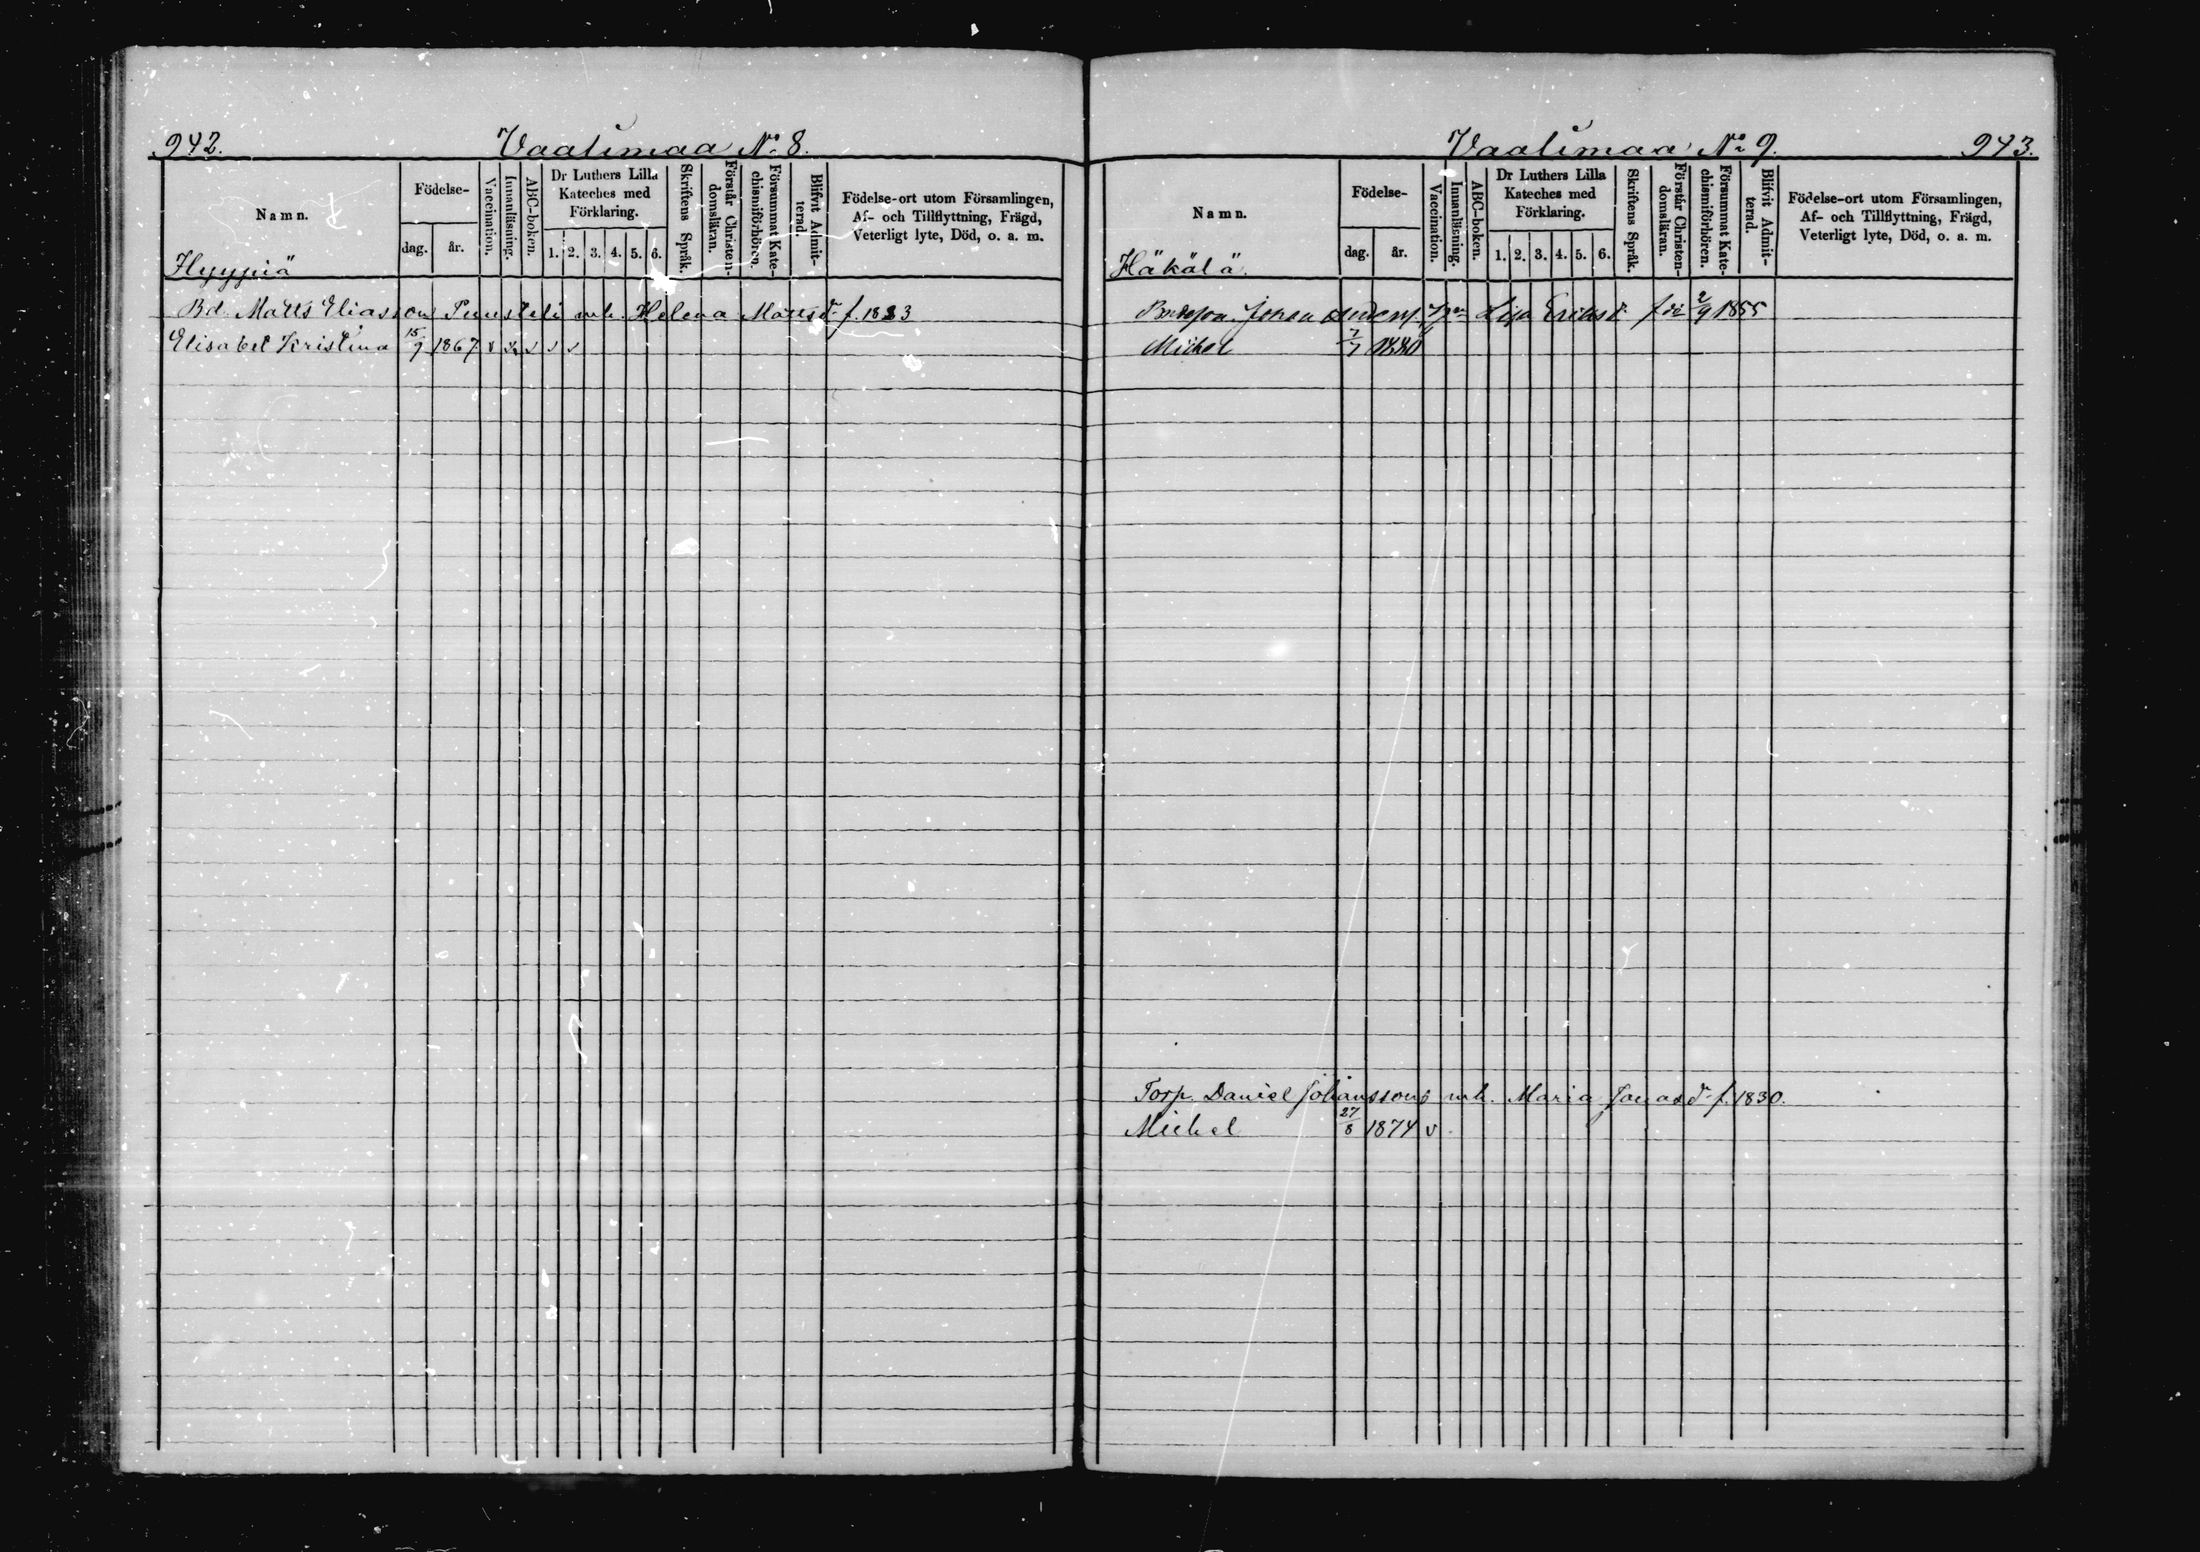 942.
Vaalimaa No 8.
Namn.
Födelse-
dag.
år.
Vaccination.
Innanläsning.
ABC-boken.
Dr Luthers Lilla
Kateches med
Förklaring.
1. 2. 3. 4. 5. 6.
Skriftens Språk.
Förstår Christen-
domsläran.
Försummat Kate-
chismiförhören.
Blifvit Admit-
terad.
Födelse-ort utom Församlingen,
Af- och Tillflyttning, Frägd,
Veterligt lyte, Död, o. a. m.
Hyypiä
Bd. Matts Eliasson Puusteli enk. Helena Mattsdr f. 1833
Elisabet Kristina 15/9 1867 v x v v v
Vaalimaa No 9.
943.
Namn.
Födelse-
dag.
år.
Vaccination.
Innanläsning.
ABC-boken.
Dr Luthers Lilla
Kateches med
Förklaring.
1. 2. 3. 4. 5. 6.
Skriftens Språk.
Förstår Christen-
domsläran.
Försummat Kate-
chismiförhören.
Blifvit Admit-
terad.
Födelse-ort utom Församlingen,
Af- och Tillflyttning, Frägd,
Veterligt lyte, Död, o. a. m.
Häkälä
Johan Lisa Eriksd. 2/9 1855
Michel 7/7 1880
Torp. Daniel Johanssons enk. Maria Jonasdr f. 1830.
Michel 27/8 1874 v